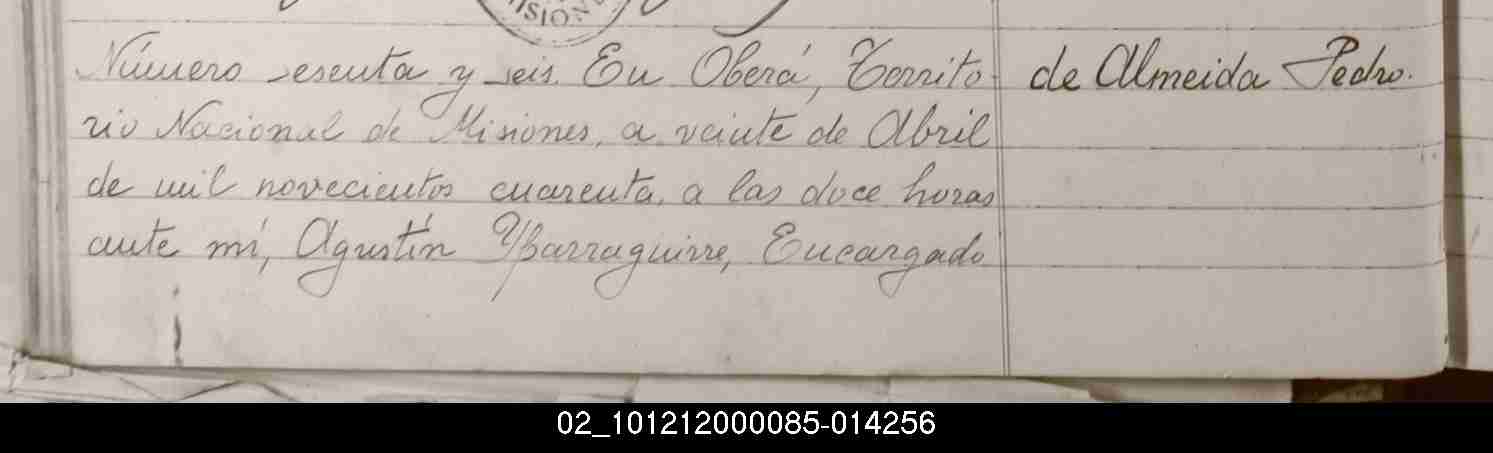 MISIONE
Número sesenta y seis. En Oberá, Territo-
rio Nacional de Misiones, a veinte de Abril
de mil novecientos cuarenta, a las doce horas
ante mí, Agustín Ybarraguirre, Encargado
de Almeida Pedro.
02_101212000085-014256